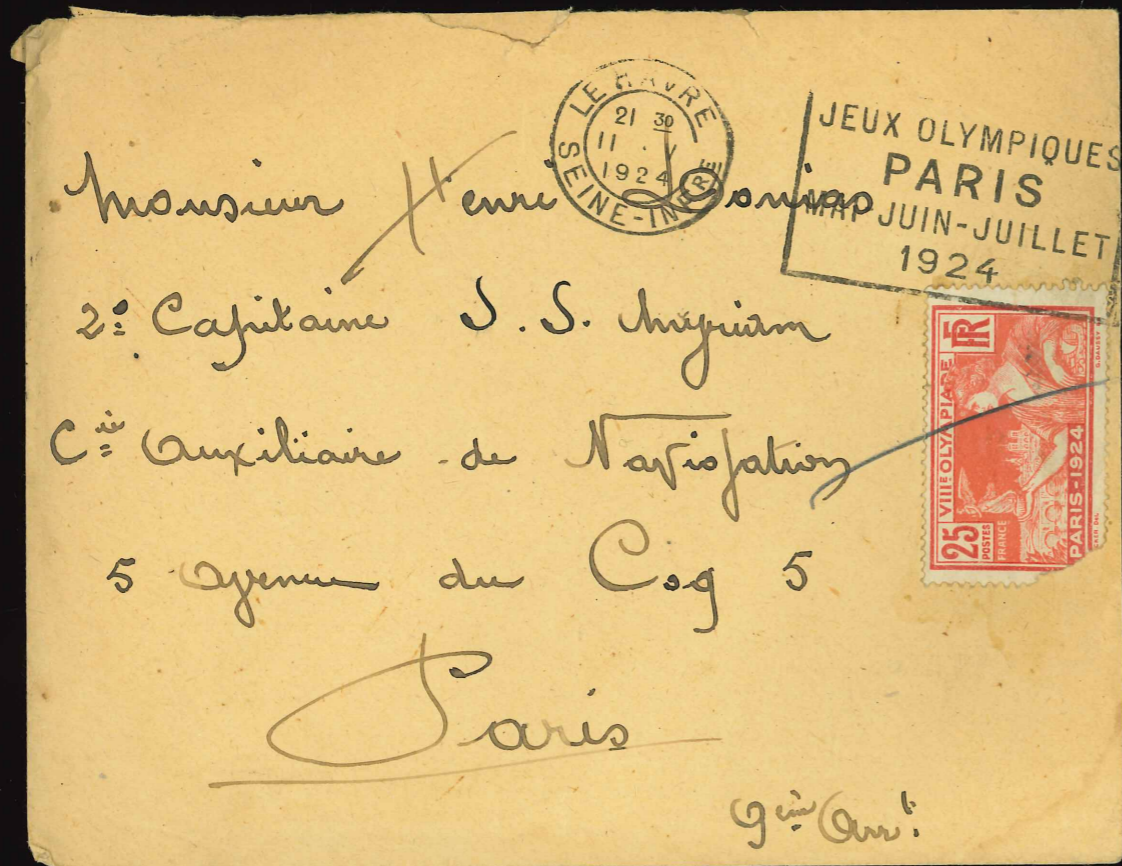 LE HAVRE
21 30
11 . V
1924
SEINE-INFRE
JEUX OLYMPIQUES
PARIS
MAI-JUIN-JUILLET
1924
Monsieur Henri
2e Capitaine S. S. Myriam
Cie Auxiliaire de Navigation
5 Avenue du Coq 5
Paris
9ème Arrt.
RF
VIIIE OLYMPIADE
25
POSTES
FRANCE
PARIS-1924
G. DAUSSY